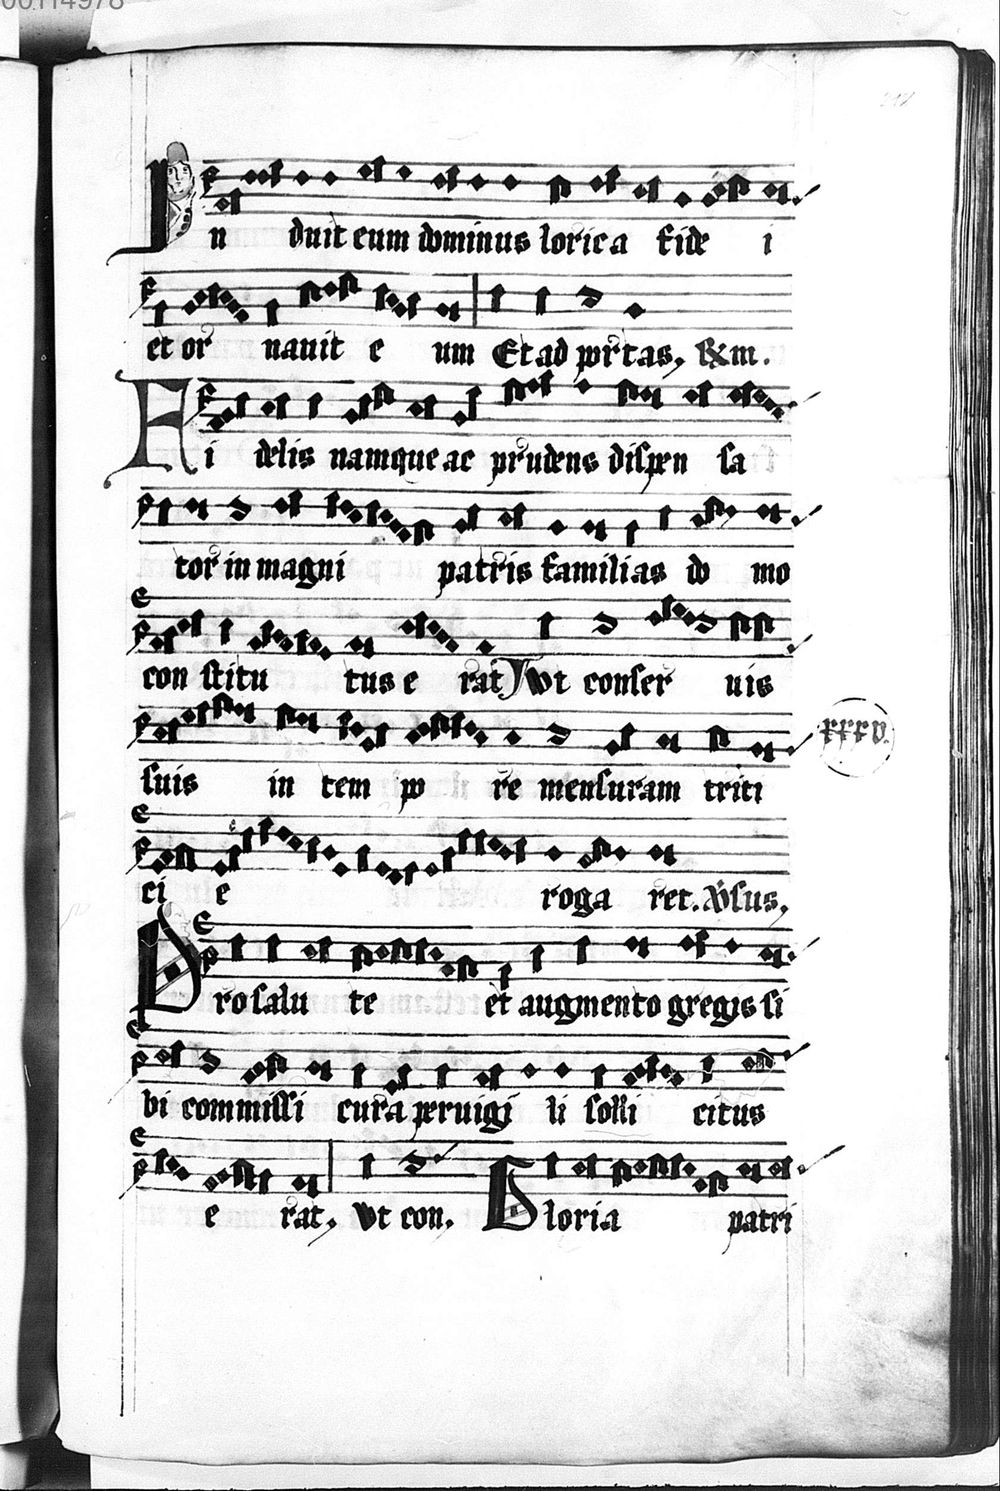 00114978
In duit eum dominus lorica fide i
et or nauit e um Et ad portas, Rxm.
Fi delis namque ac prudens dispen sa
tor in magni patris familias do mo
con stitu tus e rat Vt conser uis
suis in tem po re mensuram triti
xxxv.
ci e roga ret. Vsus,
Pro salu te et augmento gregis si
bi commissi cura peruigi li solli citus
e rat, Vt con. Gloria patri